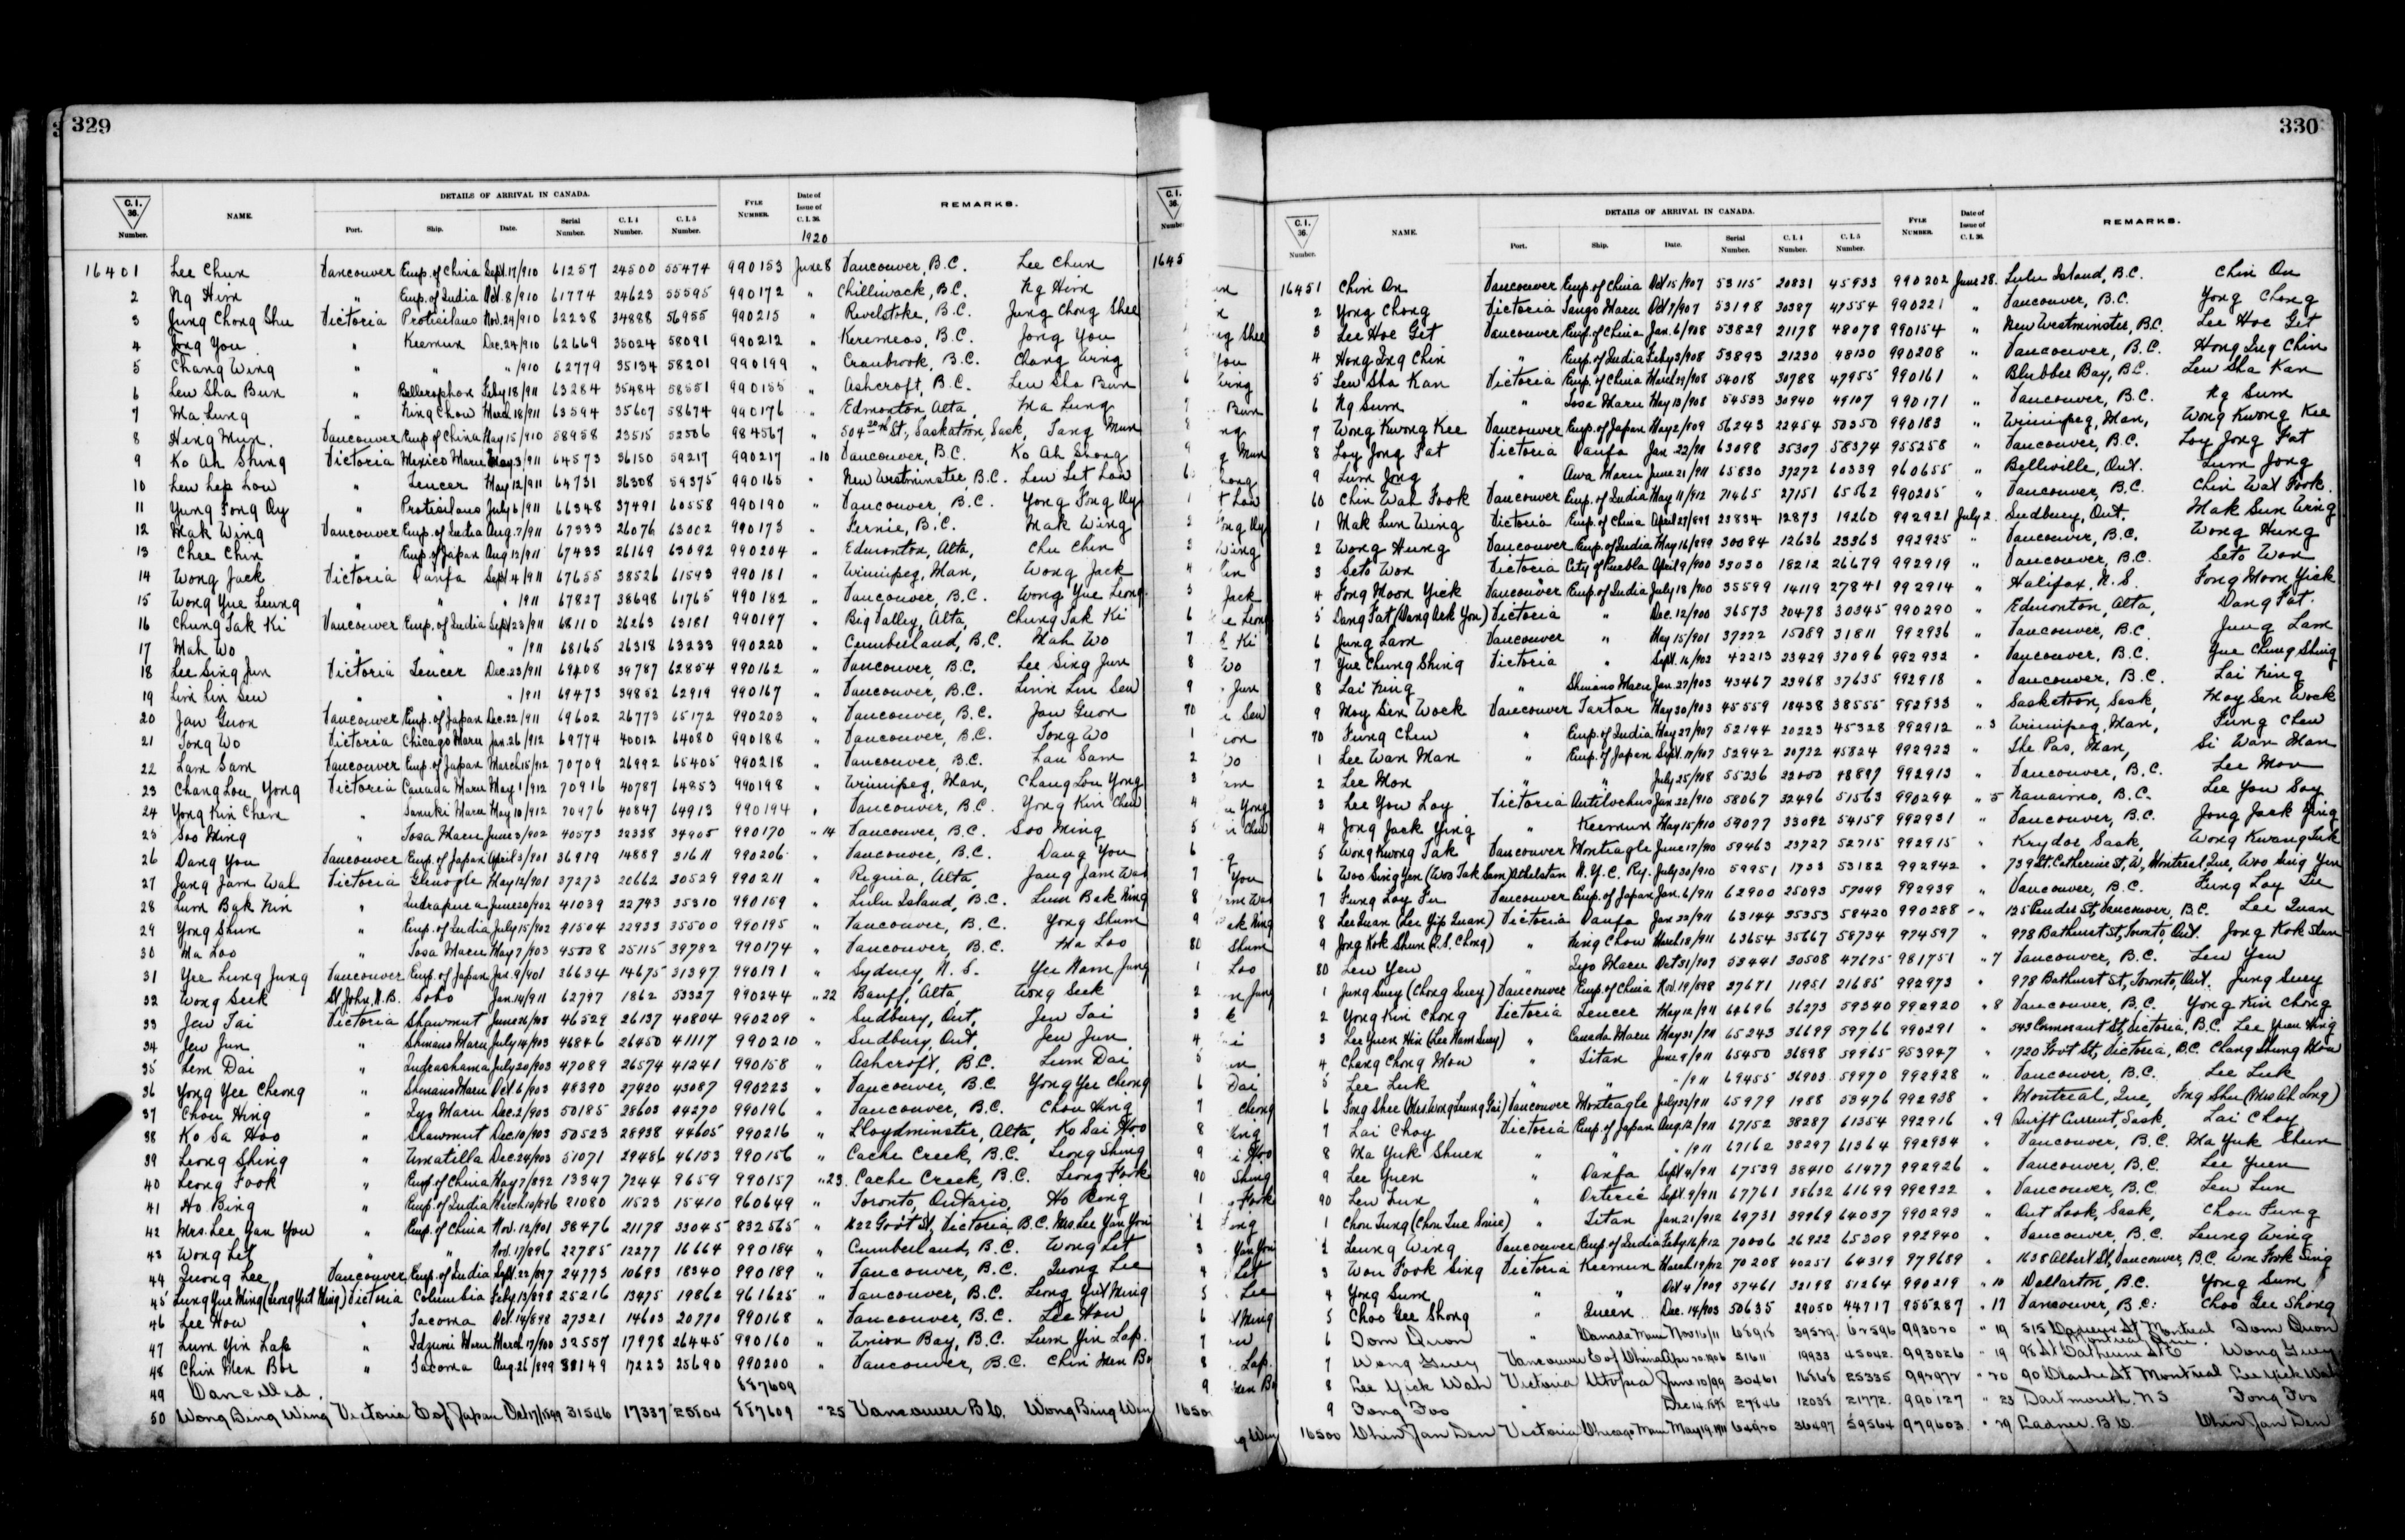 329
C.I. 36. Number. NAME. DETAILS OF ARRIVAL IN CANADA. Port. Ship. Date. Serial Number. C.I.4 Number. C.I.5 Number. FYLE NUMBER. Date of Issue of C.I.36. REMARKS.
1920
16401 Lee Chun Vancouver Emp. of China Sept. 17/910 61257 24500 55474 990153 June 8 Vancouver, B.C. Lee Chun
2 Ng Him " Emp. of India Oct. 8/910 61774 24623 55595 990172 " Chilliwack, B.C. Ng Him
3 Jung Chong Shu Victoria Protisilaus Nov. 24/910 62238 34888 56955 990215 " Revelstoke, B.C. Jung Chong Shee
4 Jong You " Keemun Dec. 24/910 62669 35024 58091 990212 " Keremeos, B.C. Jong You
5 Chang Wing " " " /910 62779 35134 58201 990199 " Cranbrook, B.C. Chang Wing
6 Lew Sha Bun " Bellerophon Feby 18/911 63284 35484 58551 990155 " Ashcroft, B.C. Lew Sha Bun
7 Ma Lung " Ning Chow March 18/911 63594 35607 58674 990176 " Edmonton, Alta, Ma Lung
8 Heng Mun. Vancouver Emp. of China May 15/910 58958 23515 52506 984567 " 504 20th St, Saskatoon, Sask, Tang Mun
9 Ko Ah Shing Victoria Mexico Maru May 3/911 64573 36150 59217 990217 " 10 Vancouver, B.C. Ko Ah Shong
10 Lew Lep Low " Teucer May 12/911 64731 36308 59375 990165 " New Westminster, B.C. Lew Let Low
11 Yung Fong Oy " Protisilaus July 6/911 66348 37491 60558 990190 " Vancouver, B.C. Yong Fong Oy
12 Mak Wing Vancouver Emp. of India Aug. 7/911 67333 26076 63002 990173 " Fernie, B.C. Mak Wing
13 Chee Chin " Emp. of Japan Aug 13/911 67433 26169 63092 990204 " Edmonton, Alta, Chu Chin
14 Wong Jack Victoria Oanfa Sept 4/911 67655 38526 61593 990181 " Winnipeg, Man, Wong Jack
15 Wong Yue Leung " " " 1911 67827 38698 61765 990182 " Vancouver, B.C. Wong Yue Leong
16 Chung Tak Ki Vancouver Emp. of India Sept 23/911 68110 26263 63181 990197 " Big Valley, Alta, Chung Tak Ki
17 Mah Wo " " " /911 68165 26318 63233 990220 " Cumberland, B.C. Mah Wo
18 Lee Sing Jun Victoria Teucer Dec. 23/911 69408 39787 62854 990162 " Vancouver, B.C. Lee Sing Jun
19 Lim Lin Sew " " " /911 69473 39852 62919 990167 " Vancouver, B.C. Limn Lin Sew
20 Jan Guon Vancouver Emp. of Japan Dec. 22/911 69602 26773 65172 990203 " Vancouver, B.C. Jan Guon
21 Tong Wo Victoria Chicago Maru Jan. 26/912 69774 40012 64080 990188 " Vancouver, B.C. Tong Wo
22 Lam Sam Vancouver Emp. of Japan March 15/912 70709 26992 65405 990218 " Vancouver, B.C. Lau Sam
23 Chang Lou Yong Victoria Canada Maru May 1/912 70916 40787 64853 990198 " Winnipeg, Man, Chang Lou Yong
24 Yong Kin Chew " Sanuki Maru May 10/912 70976 40847 64913 990194 " Vancouver, B.C. Yong Kin Chew
25 Soo Ming " Tosa Maru June 3/902 40573 22338 34905 990170 " 14 Vancouver, B.C. Soo Ming
26 Dang You Vancouver Emp. of Japan April 3/901 36919 14889 31611 990206 " Vancouver, B.C. Dang You
27 Jang Jam Wah Victoria Glenogle May 12/901 37273 20662 30529 990211 " Regina, Alta, Jang Jam Wah
28 Lum Bak Nin " Indrapura June 20/902 41039 22743 35310 990159 " Lulu Island, B.C. Lum Bak Ning
29 Yong Shun " Emp. of India July 15/902 41504 22933 35500 990195 " Vancouver, B.C. Yong Shum
30 Ma Loo " Tosa Maru May 7/903 45008 25115 39782 990174 " Vancouver, B.C. Ma Loo
31 Yee Lung Jung Vancouver Emp. of Japan Jan. 9/901 36634 14675 31397 990191 " Sydney, N.S. Yee Nam Jung
32 Wong Seek St John, N.B. Sobo Jan. 14/911 62797 1862 53327 990244 " 22 Banff, Alta, Wong Seek
33 Jew Tai Victoria Shawmut June 26/903 46529 26137 40804 990209 " Sudbury, Ont, Jew Tai
34 Jew Jun " Shinano Maru July 14/903 46846 26450 41117 990210 " Sudbury, Ont, Jew Jun
35 Lem Dai " Indrashama July 20/903 47089 26574 41241 990158 " Ashcroft, B.C. Lum Dai
36 Yong Yee Cheong " Shinano Maru Oct. 6/903 48390 27420 43087 990223 " Vancouver, B.C. Yong Yee Cheong
37 Chou Hing " Iyo Maru Dec. 2/903 50185 28603 44270 990196 " Vancouver, B.C. Chou Hing
38 Ko Sa Hoo " Shawmut Dec. 10/903 50523 28938 44605 990216 " Lloydminster, Alta, Ko Sai Hoo
39 Leong Shing " Umatilla Dec. 24/903 51071 29486 46153 990156 " Cache Creek, B.C. Leong Shing
40 Leong Fook " Emp. of China May 7/892 13347 7244 9659 990157 " 23. Cache Creek, B.C. Leong Fook
41 Ho Bing " Emp. of India March 10/896 21080 11523 15410 960649 " Toronto, Ontario, Ho Beng
42 Mrs. Lee Yan You " Emp. of China Nov. 12/901 38476 21178 33045 832565 " 1622 Gov't St, Victoria, B.C. Mrs. Lee Yan You
43 Wong Let " " Nov. 17/896 22785 12277 16664 990184 " Cumberland, B.C. Wong Let
44 Quong Lee Vancouver Emp. of India Sept. 22/897 24773 10693 18340 990189 " Vancouver, B.C. Quong Lee
45 Lung Yue Ming (Leong Yut Ming) Victoria Columbia Feby 13/898 25216 13475 19862 961625 " Vancouver, B.C. Leong Yut Ming
46 Lee How " Tacoma Oct. 14/898 27321 14603 20770 990168 " Vancouver, B.C. Lee How
47 Lum Yin Lap " Idzumi Maru March 17/900 32557 17978 26445 990160 " Union Bay, B.C. Lum Yin Lap.
48 Chin Men Bor " Tacoma Aug. 26/899 38149 17223 25690 990200 " Vancouver, B.C. Chin Men Bo
49 Cancelled. 887609
50 Wong Bing Wing Victoria E of Japan Oct 17/1899 31546 17337 25804 887609 " 25 Vancouver B.C. Wong Bing Win
330
C.I. 36. Number. NAME. DETAILS OF ARRIVAL IN CANADA. Port. Ship. Date. Serial Number. C.I.4 Number. C.I.5 Number. FYLE NUMBER. Date of Issue of C.I.36. REMARKS.
16451 Chin On Vancouver Emp. of China Oct 15/907 53115 20831 45933 990202 June 28. Lulu Island, B.C. Chin On
2 Yong Chong Victoria Tango Maru Oct 7/907 53198 30387 47554 990221 " Vancouver, B.C. Yong Chong
3 Lee Hoe Git Vancouver Emp. of China Jan. 6/908 53829 21178 48078 990154 " New Westminster, B.C. Lee Hoe Git
4 Hong Ing Chin " Emp. of India Feby 3/908 53893 21230 48130 990208 " Vancouver, B.C. Hong Ing Chin
5 Lew Sha Kan Victoria Emp. of China March 29/908 54018 30788 47955 990161 " Blubber Bay, B.C. Lew Sha Kan
6 Ng Sum " Tosa Maru May 13/908 54533 30940 49107 990171 " Vancouver, B.C. Ng Sum
7 Wong Kwong Kee Vancouver Emp. of Japan May 2/909 56243 22454 50350 990183 " Winnipeg, Man, Wong Kwong Kee
8 Loy Jong Fat Victoria Oanfa Jan. 22/911 63098 35307 58374 955258 " Vancouver, B.C. Loy Jong Fat
9 Lum Jong " Awa Maru June 21/911 65830 37272 60339 960655 " Bellville, Ont. Lum Jong
60 Chin Wah Fook Vancouver Emp. of India May 11/912 71465 27151 65562 990205 " Vancouver, B.C. Chin Wat Fook.
1 Mak Lun Wing Victoria Emp. of China April 27/898 23834 12873 19260 992921 July 2. Sudbury, Ont. Mak Sun Wing
2 Wong Hung Vancouver Emp. of India May 16/899 30084 12636 23363 992925 " Vancouver, B.C. Wong Hung
3 Seto Won Victoria City of Puebla April 9/900 33030 18212 26679 992919 " Vancouver, B.C. Seto Won
4 Fong Moon Yick Vancouver Emp. of India July 18/900 35599 14119 27841 992914 " Halifax, N.S. Fong Moon Yick
5 Dang Fat (Dang Ack You) Victoria " Dec. 12/900 36573 20478 30345 990290 " Edmonton, Alta, Dang Fat.
6 Jung Lam Vancouver " May 15/901 37222 15089 31811 992936 " Vancouver, B.C. Jung Lam
7 Yue Chung Shing Victoria " Sept. 16/902 42213 23429 37096 992932 " Vancouver, B.C. Yue Chung Shing
8 Lai Ning " Shinano Maru Jan. 27/903 43467 23968 37635 992918 " Vancouver, B.C. Lai Ning
9 Moy Sen Wock Vancouver Tartar May 30/903 45559 18438 38555 992933 " Saskatoon, Sask, Moy Sen Wock
70 Fung Chew " Emp. of India May 27/907 52144 20223 45328 992912 " 3 Winnipeg, Man, Fung Chew
1 Lee Wan Man " Emp. of Japan Sept. 17/907 52942 20722 45824 992923 " The Pas, Man, Li Wan Man
2 Lee Mon " " July 25/908 55236 22000 48897 992913 " Vancouver, B.C. Lee Mon
3 Lee You Loy Victoria Antilochus Jan. 22/910 58067 32496 51563 990294 " 5 Nanaimo, B.C. Lee You Soy
4 Jong Jack Ying " Keemun May 15/910 59077 33092 54159 992931 " Vancouver, B.C. Jong Jack Ying
5 Wong Kwong Tak Vancouver Monteagle June 17/910 59463 23727 52715 992915 " Krydor, Sask, Wong Kwang Tuk
6 Woo Sing Yen (Woo Tak Sam) Athelstan N.Y.C. Ry. July 30/910 59951 1733 53182 992942 " 739 St Catherine St, W, Montreal, Que, Woo Sing Yen
7 Fung Loy Fu Vancouver Emp. of Japan Jan. 6/911 62900 25093 57049 992939 " Vancouver, B.C. Fung Loy Fu
8 Lee Quan (Lee Yip Quan) Victoria Oanfa Jan 22/911 63144 35353 58420 990288 " 135 Pender St, Vancouver, B.C. Lee Quan
9 Jong Kok Shun (Q.S. Chong) " Ning Chow March 18/911 63654 35667 58734 974597 " 978 Bathurst St, Toronto, Ont. Jong Kok Shun
80 Lew Yew " Iyo Maru Oct 31/907 53441 30508 47675 981751 " 7 Vancouver, B.C. Lew Yew
1 Jung Suey (Chong Suey) Vancouver Emp. of China Nov. 19/898 27671 11951 21685 992973 " 978 Bathurst St, Toronto, Ont. Jung Suey
2 Yong Kin Chong Victoria Teucer May 12/911 64696 36273 59340 992920 " 8 Vancouver, B.C. Yong Kin Chong
3 Lee Yuen Hin (Lee Nam Suey) " Canada Maru May 31/911 65243 36699 59766 990291 " 543 Cormorant St, Victoria, B.C. Lee Yuen Hing
4 Chang Chong Mow " Titan June 9/911 65450 36898 59965 953947 " 1720 Gov't St, Victoria, B.C. Chang Shung Mow
5 Lee Luk " " " /911 69455 36903 59970 992928 " Vancouver, B.C. Lee Luk
6 Fong Shee (Mrs. Wong Leung Gai) Vancouver Monteagle July 22/911 65979 1988 53476 992938 " Montreal, Que, Fong Shu (Mrs Ah Long)
7 Lai Choy Victoria Emp. of Japan Aug. 12/911 67152 38287 61354 992916 " 9 Swift Current, Sask, Lai Choy
8 Ma Yuk Shuen " " " /911 67162 38297 61364 992934 " Vancouver, B.C. Ma Yuk Shun
9 Lee Yuen " Oanfa Sept 4/911 67539 38410 61477 992926 " Vancouver, B.C. Lee Yuen
90 Lew Lun " Orteric Sept. 9/911 67761 38632 61699 992922 " Vancouver, B.C. Lew Lun
1 Chou Fung (Chou Tue Soise) " Titan Jan. 21/912 69731 39969 64037 990293 " Out Look, Sask, Chou Fung
2 Leung Wing Vancouver Emp. of India Feby 16/912 70006 26922 65309 992940 " Vancouver, B.C. Leung Wing
3 Won Fook Sing Victoria Keemun March 19/912 70208 40251 64319 979689 " 1638 Albert St, Vancouver, B.C. Won Fook Sing
4 Yong Sum " " Oct 4/909 57461 32198 51264 990219 " 10 Dollarton, B.C. Yong Sum
5 Choo Gee Shong " Queen Dec. 14/903 50635 29050 44717 955287 " 17 Vancouver, B.C. Choo Gee Shong
6 Dom Quon " Canada Maru Nov 16/11 68918 39529 62596 993020 " 19 515 St Montreal Dom Quon
7 Wong Guey Vancouver E of China Apr 20 1906 51611 19933 45042 993026 " 19 98 St Catherine St E Montreal Que. Wong Guey
8 Lee Yick Wah Victoria Utopia June 10/99 30461 16868 25335 992972 " 20 90 Clarke St Montreal Lee Yick Wah
9 Fong Foo " Dec 14 1898 27846 12038 21772 990127 " 23 Dartmouth. N.S Fong Foo
16500 Chin Jan Den Victoria Chicago Maru May 19 1911 64920 36497 59564 979603 " 29 Ladner. B.C. Chin Jan Den